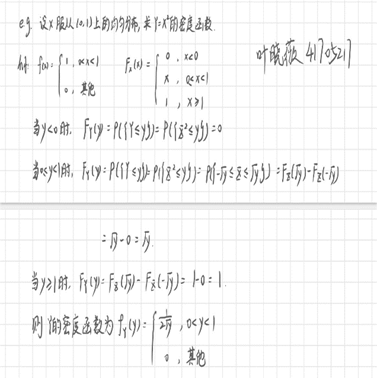 eg. 设X服从(0,1)上的均匀分布,求Y=X²的密度函数.
叶晓薇 41705217
解: f(x)={ 1, 0<x<1
0, 其他
Fx(x)={ 0, x<0
x, 0<x<1
1, x≥1
当y<0时, F_Y(y)=P({Y≤y})=P({X²≤y})=0
当0≤y<1时, F_Y(y)=P({Y≤y})=P({X²≤y})=P({-√y≤X≤√y})=F_X(√y)-F_X(-√y)
=√y-0=√y.
当y≥1时, F_Y(y)=F_X(√y)-F_X(-√y)=1-0=1.
则Y的密度函数为 f_Y(y)={ 1/(2√y), 0<y<1
0, 其他